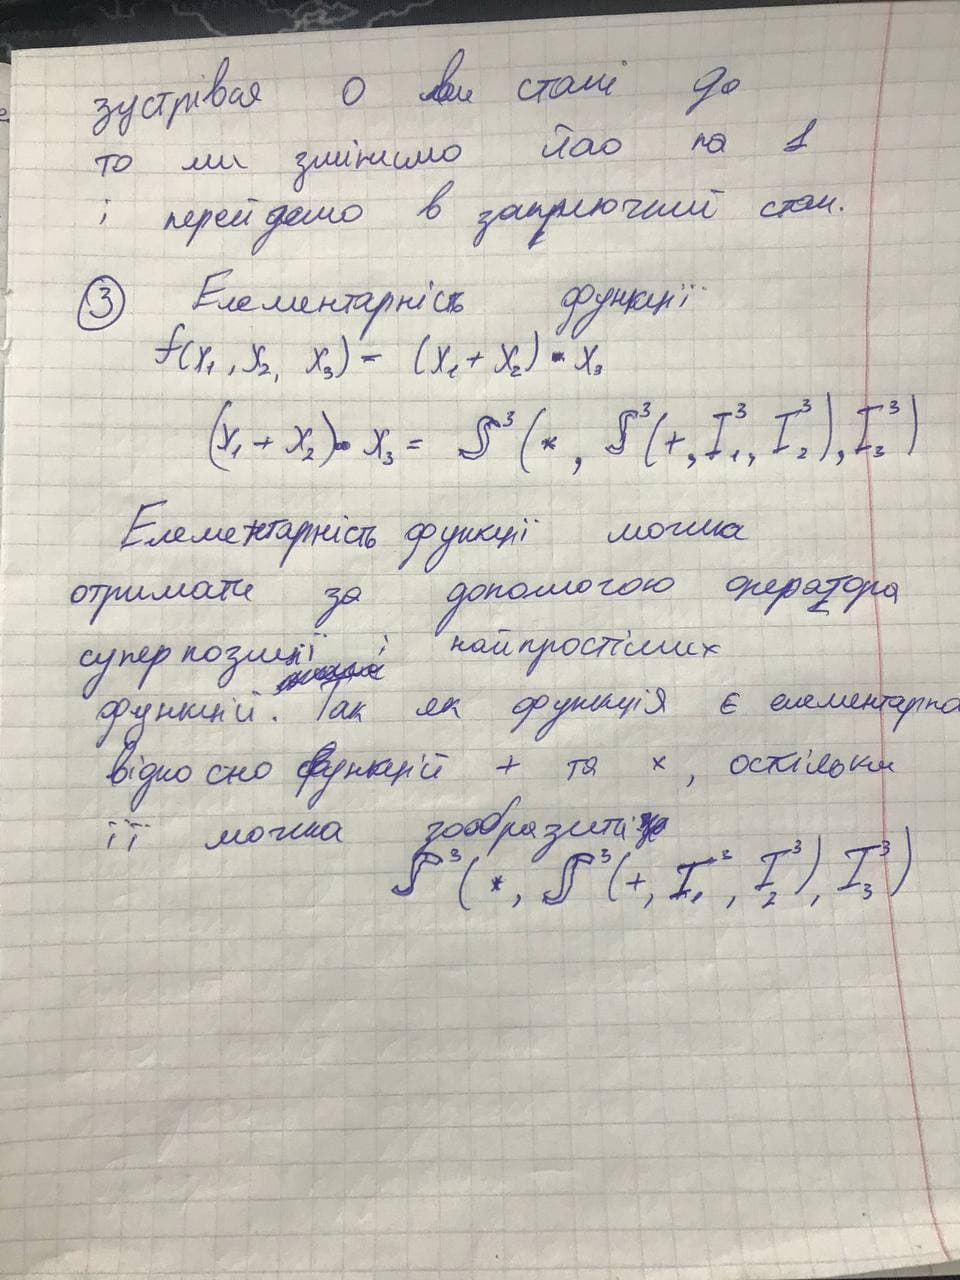 зустрівая 0 в стані q₀
то ми змінимо його на 1
і перейдемо в заключний стан.
③ Елементарність функції
f(x₁, x₂, x₃) = (x₁ + x₂) * x₃
(x₁ + x₂) * x₃ = S³(*, S³(+, I₁³, I₂³), I₃³)
Елементарність функції можна
отримати за допомогою оператора
суперпозиції і найпростіших
функцій. Так як функція є елементарна
відносно функцій + та ×, оскільки
її можна зобразити
S³(*, S³(+, I₁³, I₂³), I₃³)